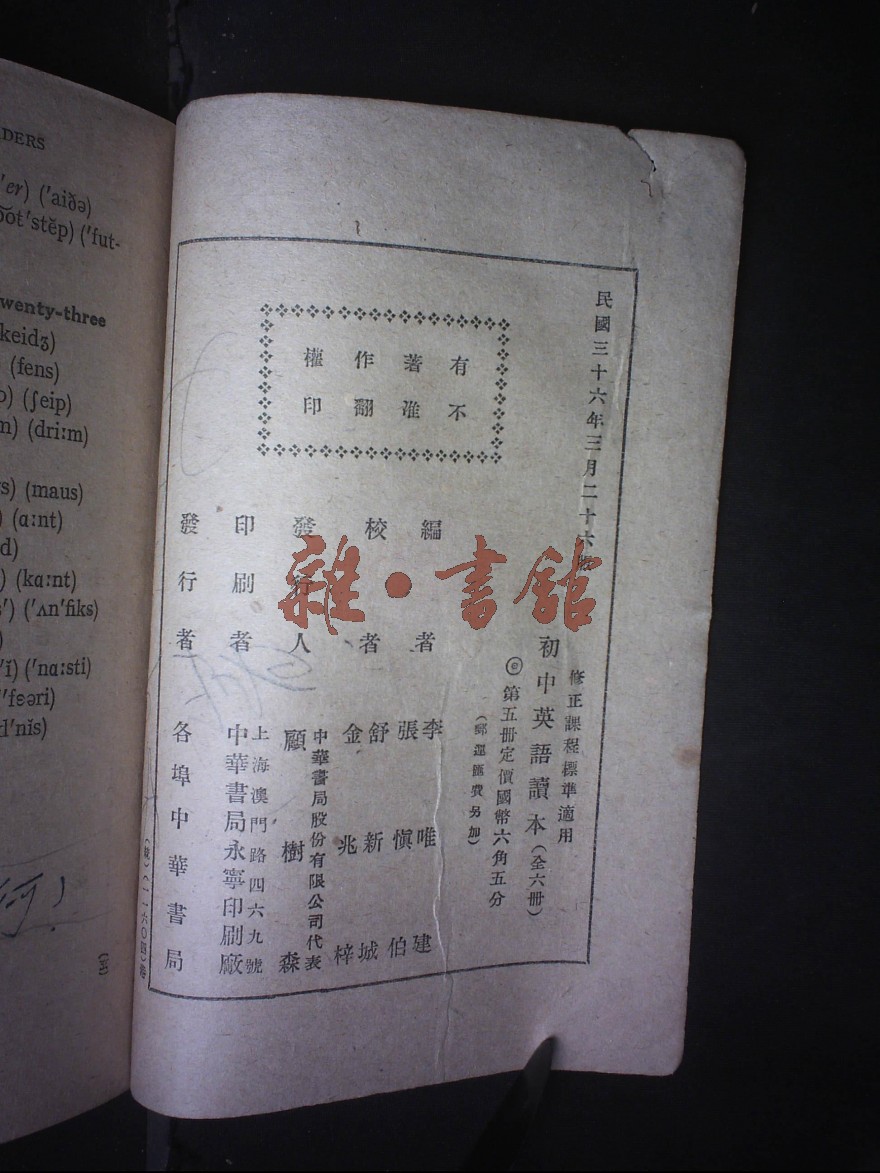 DERS
'er) ('aiðə)
o͝ot'stĕp) ('fut-
wenty-three
keidʒ)
(fens)
(ʃeip)
m) (dri:m)
s) (maus)
(ɑ:nt)
d)
(kɑ:nt)
') ('ʌn'fiks)
)
'ĭ) ('nɑ:sti)
'fɛəri)
d'nĭs)
民國三十六年三月二十六版
修正課程標準適用
初中英語讀本(全六冊)
◎第五冊定價國幣六角五分
(郵運匯費另加)
有不
著准
作翻
權印
編者
李唯建
張慎伯
校者
舒新城
金兆梓
發行人
中華書局股份有限公司代表
顧樹森
印刷者
上海澳門路四六九號
中華書局永寧印刷廠
發行者
各埠中華書局
雜·書館